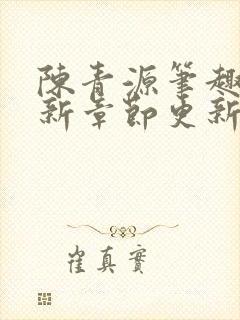 陳青源筆趣
新章節更新
崔真實